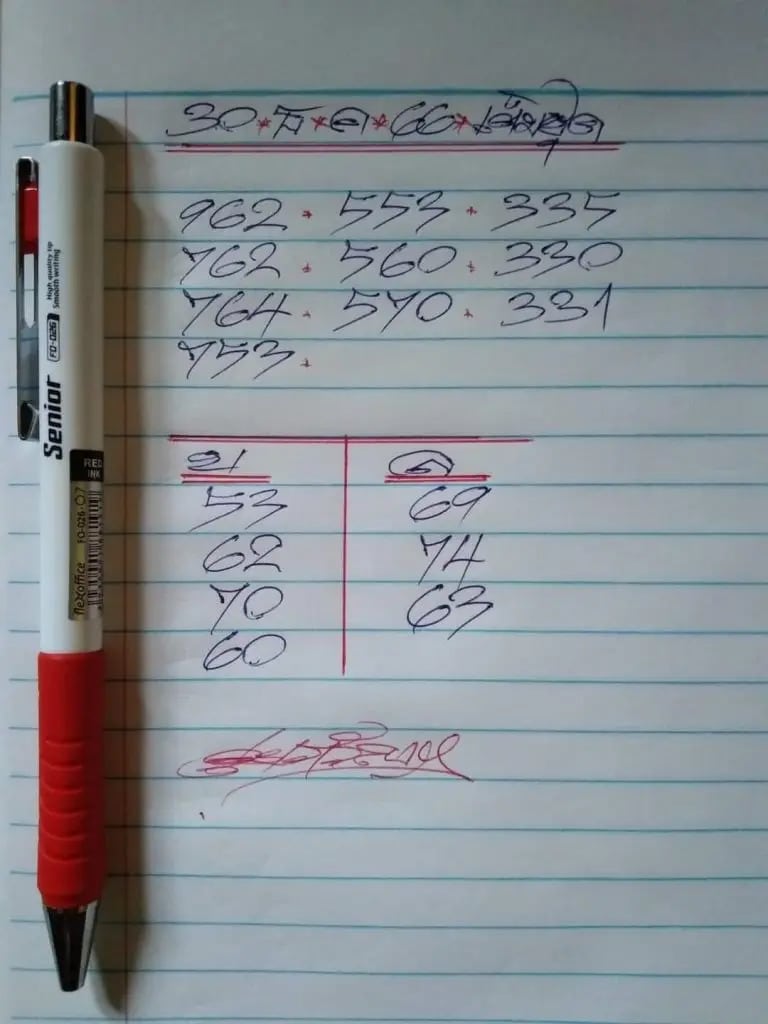 30 * ธ * ค * 66 *
962 * 553 * 335
762 * 560 * 330
764 * 570 * 331
753 *
บ ล
53 69
62 74
70 63
60
Senior
FO-026
High quality tip
Smooth writing
RED
INK
flexoffice FO-026-07